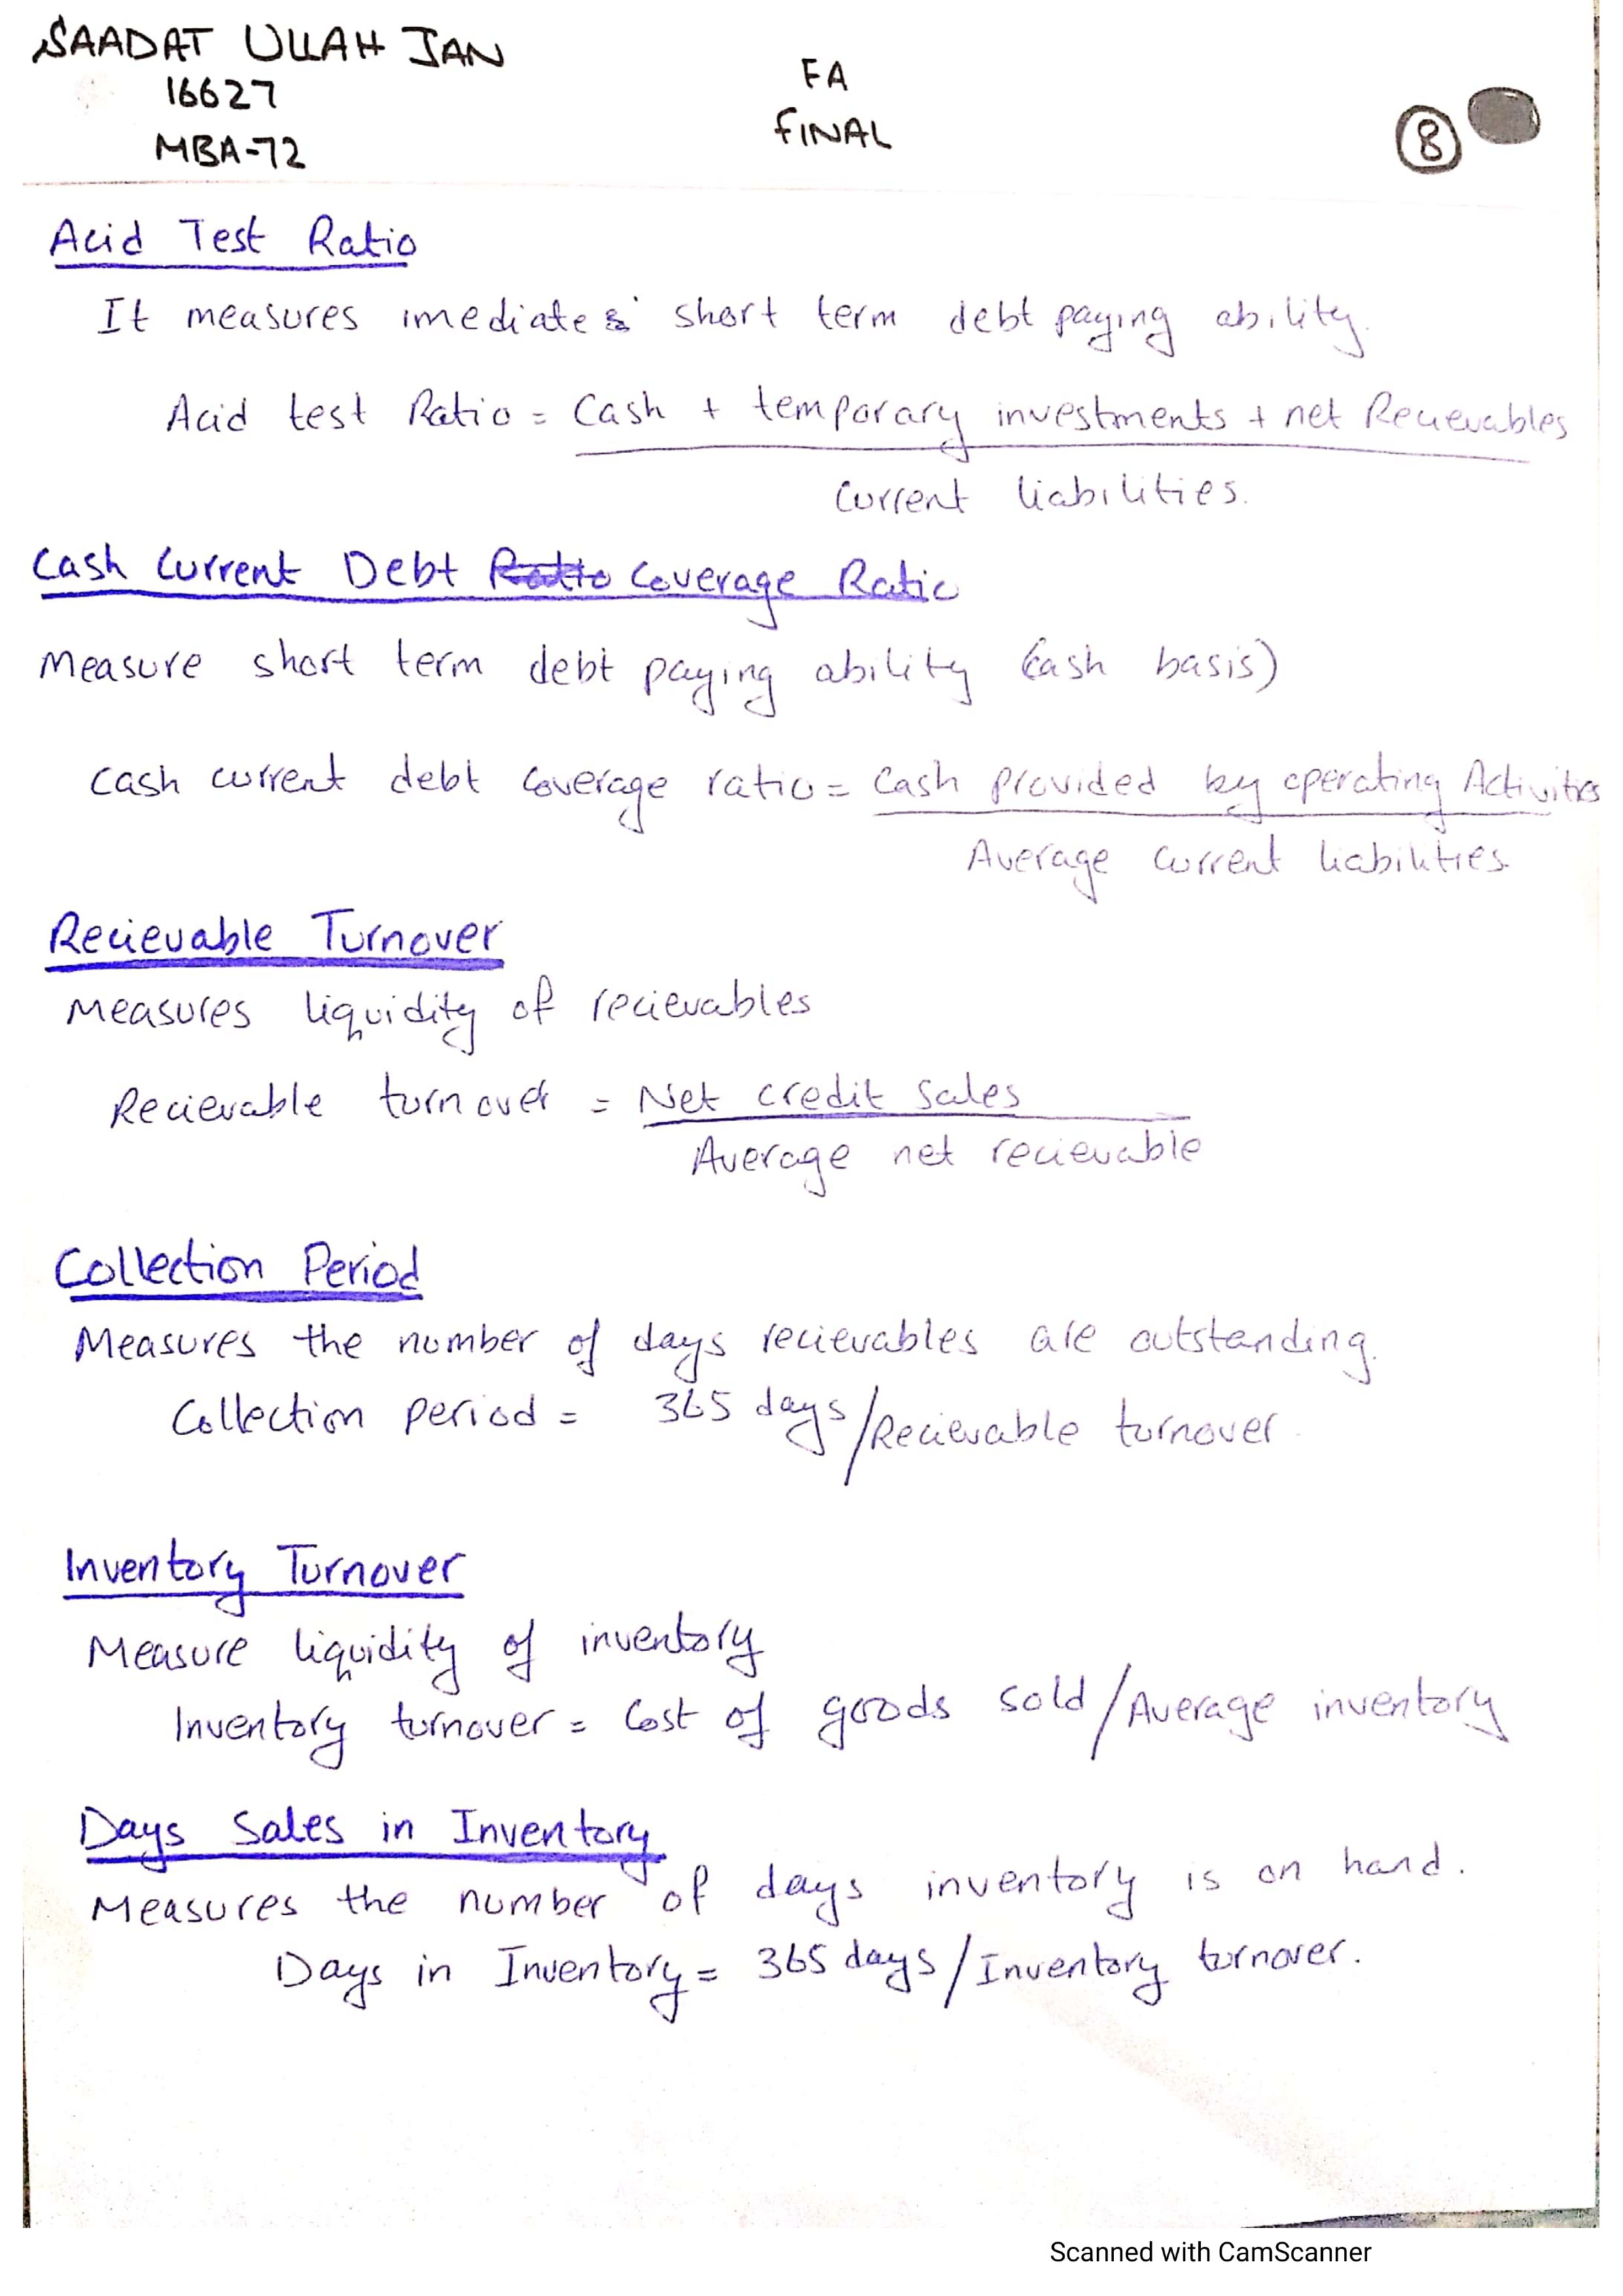 SAADAT ULLAH JAN
16627
MBA-72
FA
FINAL
8
Acid Test Ratio
It measures imediate & short term debt paying ability.
Acid test Ratio = Cash + temporary investments + net Recievables
Current liabilities.
Cash Current Debt Ratio Coverage Ratio
Measure short term debt paying ability (cash basis)
Cash current debt coverage ratio = Cash provided by operating Activities
Average current liabilities.
Recievable Turnover
Measures liquidity of recievables
Recievable turnover = Net credit sales
Average net recievable
Collection Period
Measures the number of days recievables are outstanding.
Collection period = 365 days/Recievable turnover.
Inventory Turnover
Measure liquidity of inventory
Inventory turnover = Cost of goods sold/Average inventory
Days Sales in Inventory
Measures the number of days inventory is on hand.
Days in Inventory = 365 days/Inventory turnover.
Scanned with CamScanner